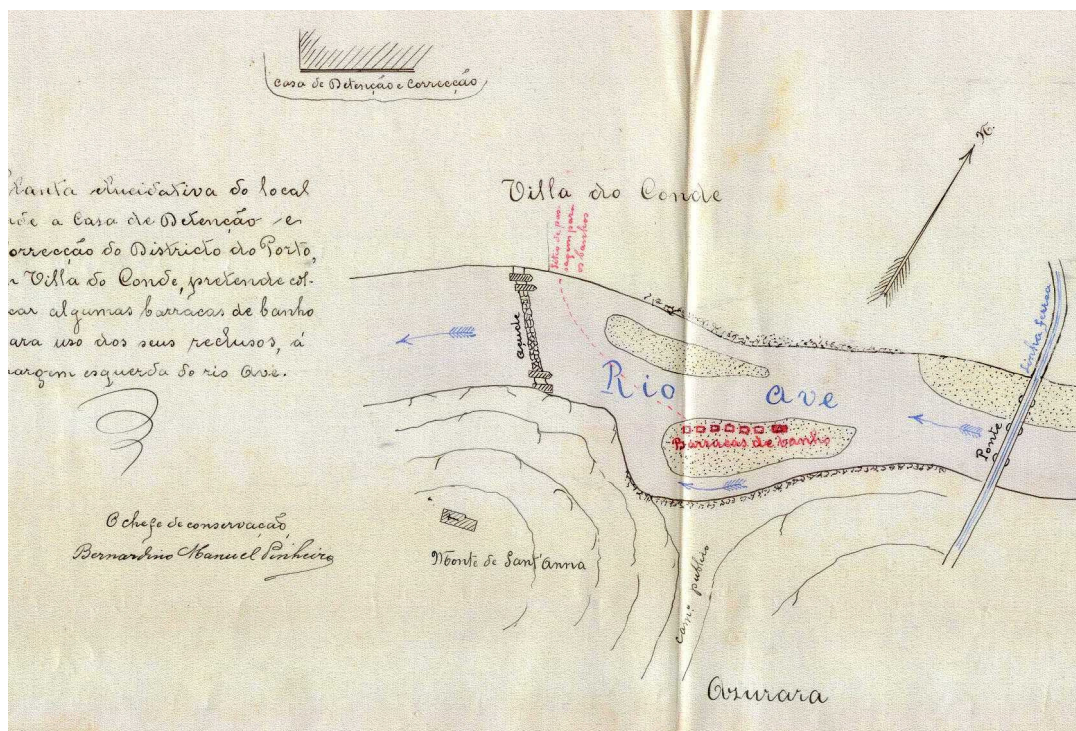 Casa de Detenção e Correcção
Planta elucidativa do local
onde a Casa de Detenção e
Correcção do Districto do Porto,
em Villa do Conde, pretende col-
locar algumas barracas de banho
para uso dos seus reclusos, á
margem esquerda do rio Ave.
O chefe de conservação
Bernardino Manuel Pinheiro
Villa do Conde
N.
Sitio de pas-
sagem para
os banhos
açude
Rio Ave
Barracas de banho
Ponte
Linha ferrea
Monte de Sant'Anna
cam.º publico
Azurara